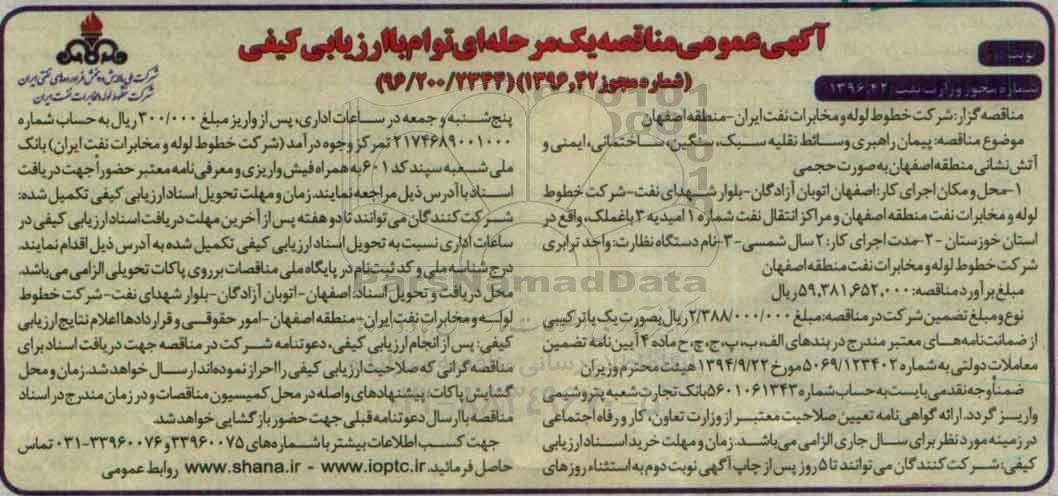 آگهی عمومی مناقصه یک مرحله‌ای توام با ارزیابی کیفی
(شماره مجوز ۱۳۹۶,۴۲) (۹۶/۲۰۰/۲۳۴۴)
شرکت ملی پالایش و پخش فرآورده‌های نفتی ایران
شرکت خطوط لوله و مخابرات نفت ایران
نوبت
شماره مجوز وزارت نفت ۱۳۹۶,۴۲
مناقصه گزار: شرکت خطوط لوله و مخابرات نفت ایران-منطقه اصفهان
موضوع مناقصه: پیمان راهبری وسائط نقلیه سبک، سنگین، ساختمانی، ایمنی و
آتش نشانی منطقه اصفهان به صورت حجمی
۱-محل و مکان اجرای کار: اصفهان اتوبان آزادگان-بلوار شهدای نفت-شرکت خطوط
لوله و مخابرات نفت منطقه اصفهان و مراکز انتقال نفت شماره ۱ امیدیه ۳ باغملک، واقع در
استان خوزستان -۲-مدت اجرای کار: ۲ سال شمسی-۳-نام دستگاه نظارت: واحد ترابری
شرکت خطوط لوله و مخابرات نفت منطقه اصفهان
مبلغ برآورد مناقصه: ۵۹,۳۸۱,۶۵۲,۰۰۰ ریال
نوع و مبلغ تضمین شرکت در مناقصه: مبلغ ۲/۳۸۸/۰۰۰/۰۰۰ ریال بصورت یک یا ترکیبی
از ضمانت‌نامه‌های معتبر مندرج در بندهای الف، ب، پ، ج، چ، ح ماده ۴ آیین نامه تضمین
معاملات دولتی به شماره ۵۰۶۹/۱۲۳۴۰۲ مورخ ۱۳۹۴/۹/۲۲ هیئت محترم وزیران
ضمناً وجه نقدمی بایست به حساب شماره ۵۶۰۱۰۶۱۳۴۳ بانک تجارت شعبه پتروشیمی
واریز گردد. ارائه گواهی نامه تعیین صلاحیت معتبر از وزارت تعاون، کار و رفاه اجتماعی
در زمینه مورد نظر برای سال جاری الزامی می‌باشد. زمان و مهلت خرید اسناد ارزیابی
کیفی: شرکت کنندگان می توانند تا ۵ روز پس از چاپ آگهی نوبت دوم به استثناء روزهای
پنج شنبه و جمعه در ساعات اداری، پس از واریز مبلغ ۳۰۰/۰۰۰ ریال به حساب شماره
۲۱۷۴۶۸۹۰۰۱۰۰۰ تمرکز وجوه درآمد (شرکت خطوط لوله و مخابرات نفت ایران) بانک
ملی شعبه سپند کد ۶۰۱ به همراه فیش واریزی و معرفی نامه معتبر حضوراً جهت دریافت
اسناد با آدرس ذیل مراجعه نمایند. زمان و مهلت تحویل اسناد ارزیابی کیفی تکمیل شده:
شرکت کنندگان می توانند تا دو هفته پس از آخرین مهلت دریافت اسناد ارزیابی کیفی در
ساعات اداری نسبت به تحویل اسناد ارزیابی کیفی تکمیل شده به آدرس ذیل اقدام نمایند.
درج شناسه ملی و کد ثبت نام در پایگاه ملی مناقصات بر روی پاکات تحویلی الزامی می باشد.
محل دریافت و تحویل اسناد: اصفهان-اتوبان آزادگان-بلوار شهدای نفت-شرکت خطوط
لوله و مخابرات نفت ایران-منطقه اصفهان-امور حقوقی و قراردادها اعلام نتایج ارزیابی
کیفی: پس از انجام ارزیابی کیفی، دعوتنامه شرکت در مناقصه جهت دریافت اسناد برای
مناقصه گرانی که صلاحیت ارزیابی کیفی را احراز نموده‌اند ارسال خواهد شد. زمان و محل
گشایش پاکات: پیشنهادهای واصله در محل کمیسیون مناقصات و در زمان مندرج در اسناد
مناقصه با ارسال دعوتنامه قبلی جهت حضور بازگشایی خواهد شد.
جهت کسب اطلاعات بیشتر با شماره های ۳۳۹۶۰۰۷۵ و ۳۳۹۶۰۰۷۶-۰۳۱ تماس
حاصل فرمائید. www.shana.ir - www.ioptc.ir روابط عمومی
ParsNamadData